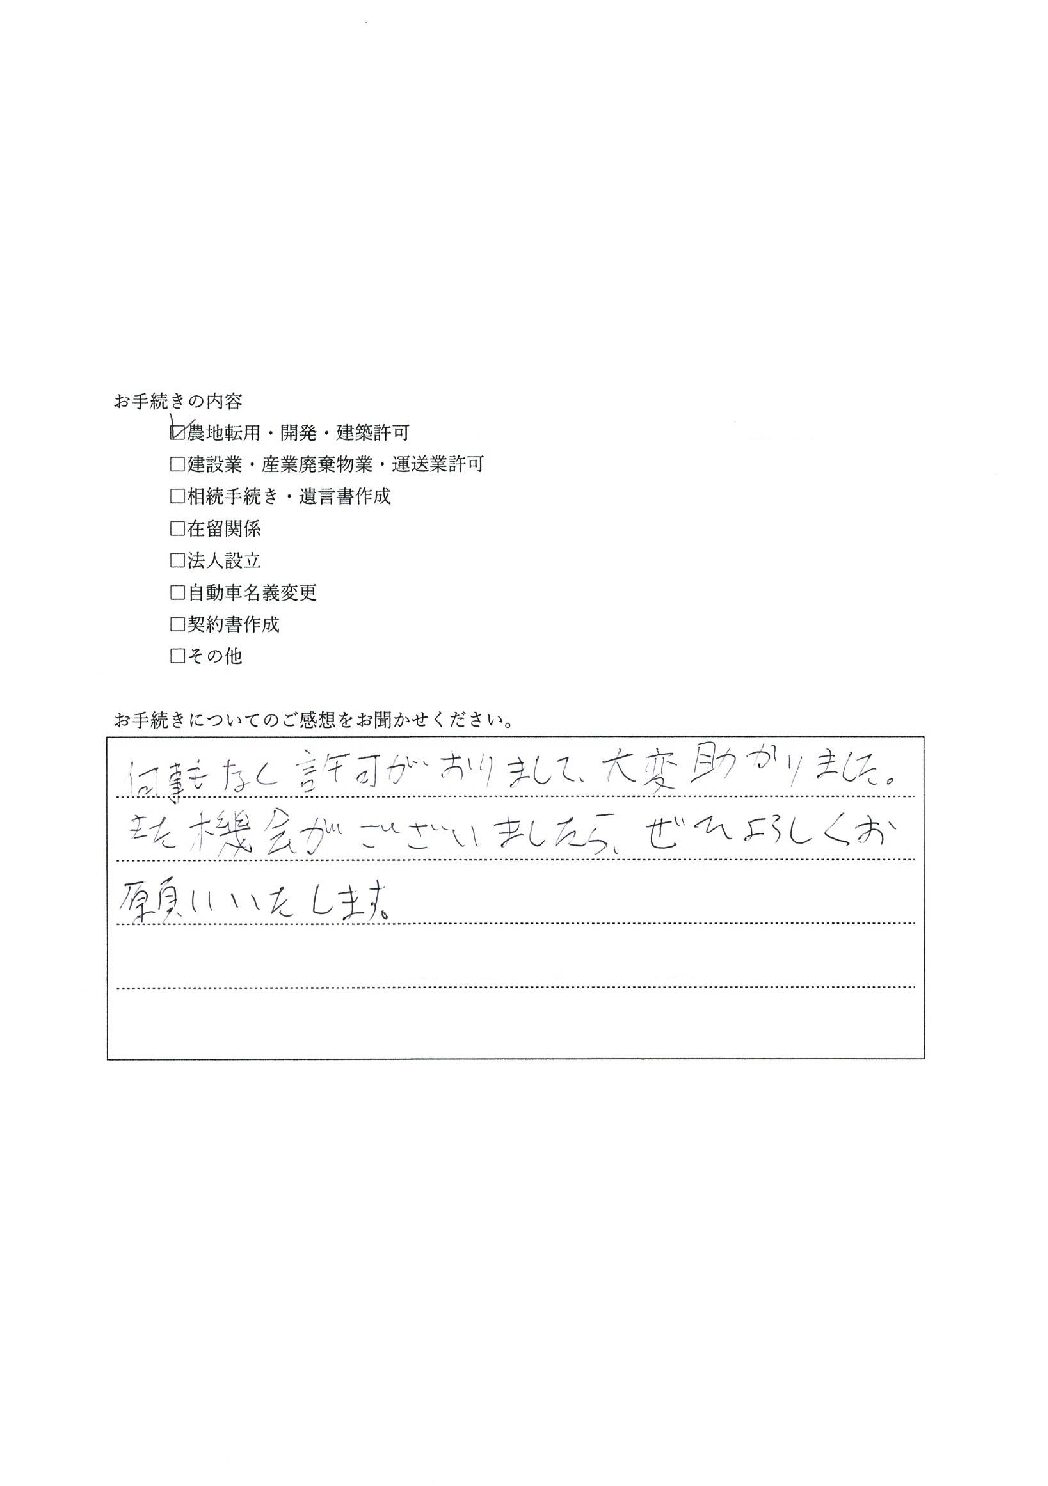 お手続きの内容
☑農地転用・開発・建築許可
□建設業・産業廃棄物業・運送業許可
□相続手続き・遺言書作成
□在留関係
□法人設立
□自動車名義変更
□契約書作成
□その他
お手続きについてのご感想をお聞かせください。
何事もなく許可がおりまして、大変助かりました。
また機会がございましたら、ぜひよろしくお
願いいたします。